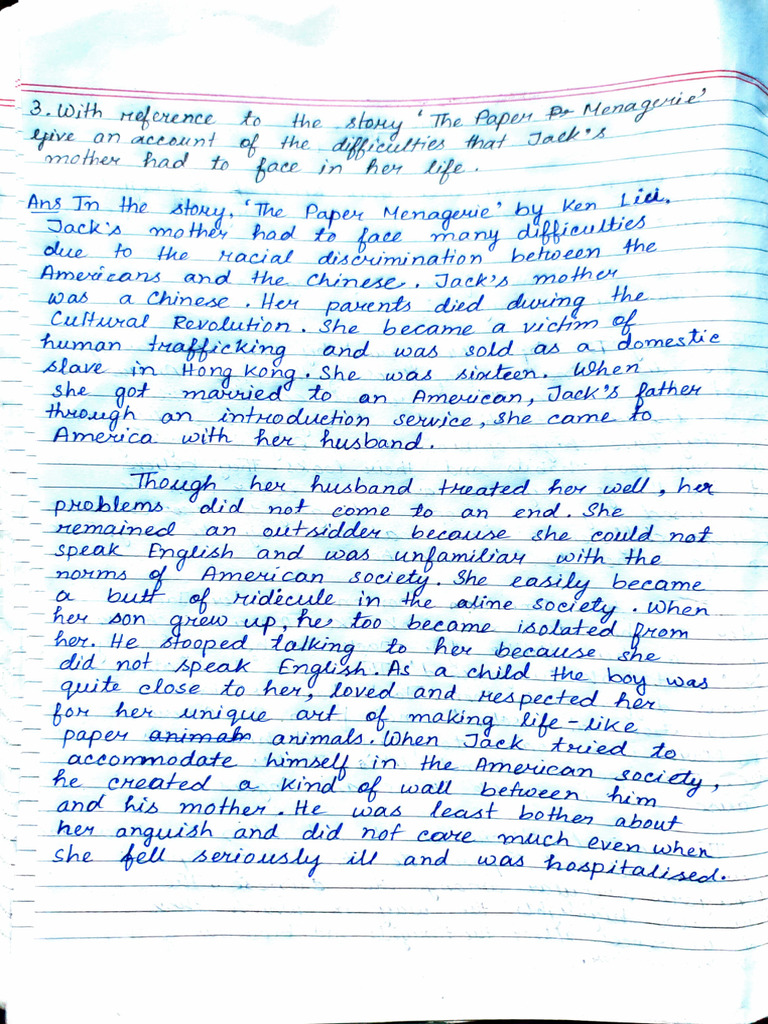 3. With reference to the story 'The Paper Pr Menagerie'
give an account of the difficulties that Jack's
mother had to face in her life.
Ans In the story, 'The Paper Menagerie' by Ken Liu,
Jack's mother had to face many difficulties
due to the racial discrimination between the
Americans and the Chinese. Jack's mother
was a Chinese. Her parents died during the
Cultural Revolution. She became a victim of
human trafficking and was sold as a domestic
slave in Hong Kong. She was sixteen. When
she got married to an American, Jack's father
through an introduction service, she came to
America with her husband.
Though her husband treated her well, her
problems did not come to an end. She
remained an outsidder because she could not
speak English and was unfamiliar with the
norms of American society. She easily became
a butt of ridicule in the aline society. When
her son grew up, he too became isolated from
her. He stooped talking to her because she
did not speak English. As a child the boy was
quite close to her, loved and respected her
for her unique art of making life-like
paper animals animals. When Jack tried to
accommodate himself in the American society,
he created a kind of wall between him
and his mother. He was least bother about
her anguish and did not care much even when
she fell seriously ill and was hospitalised.